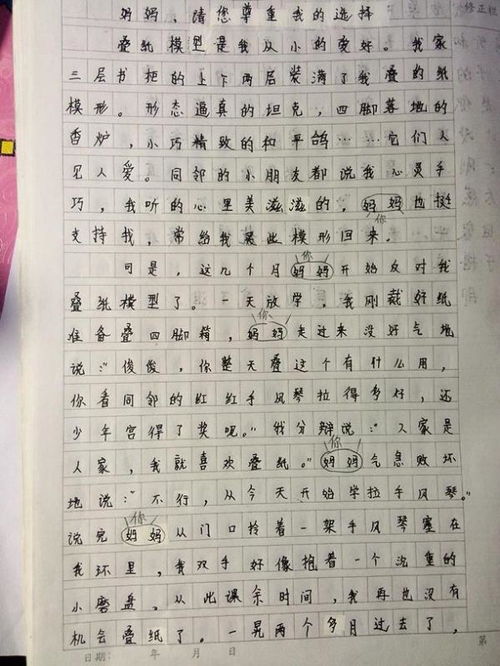 修正栏
妈妈，请您尊重我的选择
叠纸模型是我从小的爱好。我家
三层书柜的上下两层装满了我叠的纸
模形。形态逼真的坦克，四脚着地的
香炉，小巧精致的和平鸽……它们人
见人爱。同邻的小朋友都说我心灵手
巧，我听的心里美滋滋的，妈妈也挺
你
支持我，常给我买此模形回来。
你
可是，这几个月妈妈开始反对我
叠纸模型了。一天放学，我刚裁好纸
你
准备叠四脚箱，妈妈走过来没好气地
说：“俊俊，你整天叠这个有什么用，
你看同邻的红红手风琴拉得多好，还
少年宫得了奖呢。”我分辩说：“人家是
你
人家，我就喜欢叠纸。”妈妈气急败坏
地说：“不行，从今天开始学拉手风琴。”
你
说完妈妈从门口拎着一架手风琴塞在
我环里，我双手好像抱着一个沉重的
小磨盘。从此课余时间，我再也没有
机会叠纸了。一晃两个多月过去了，
日期： 年 月 日
第